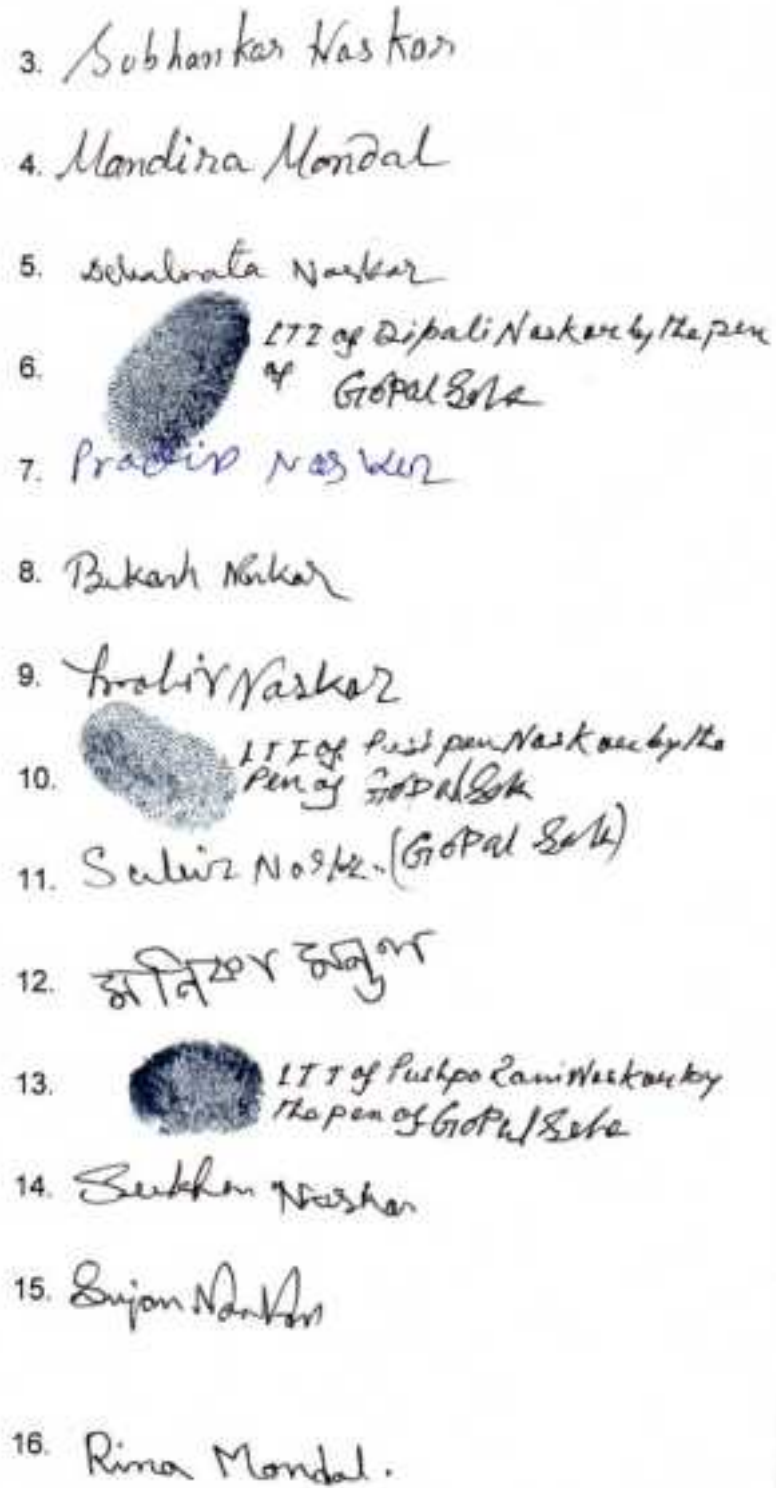 3. Subhankar Naskar
4. Mandira Mondal
5. Debabrata Naskar
LTI of Dipali Naskar by the pen
6. of Gopal
7. Pradip Naskar
8. Bikash Naskar
9. Naskar
LTI of Naskar by the
10. Pen of Gopal
11. Naskar (Gopal
12. মনিকা মন্ডল
13. LTI of Pushpo Rani Naskar by
the pen of Gopal
14. Sukhen Naskar
15. Sujan Naskar
16. Rina Mondal.